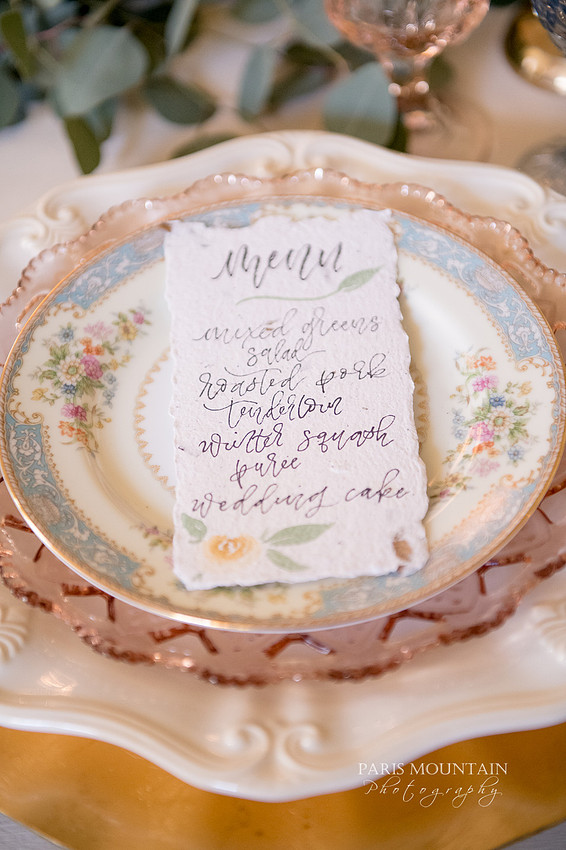 menu
mixed greens
salad
roasted pork
tenderloin
winter squash
puree
wedding cake
PARIS MOUNTAIN
Photography